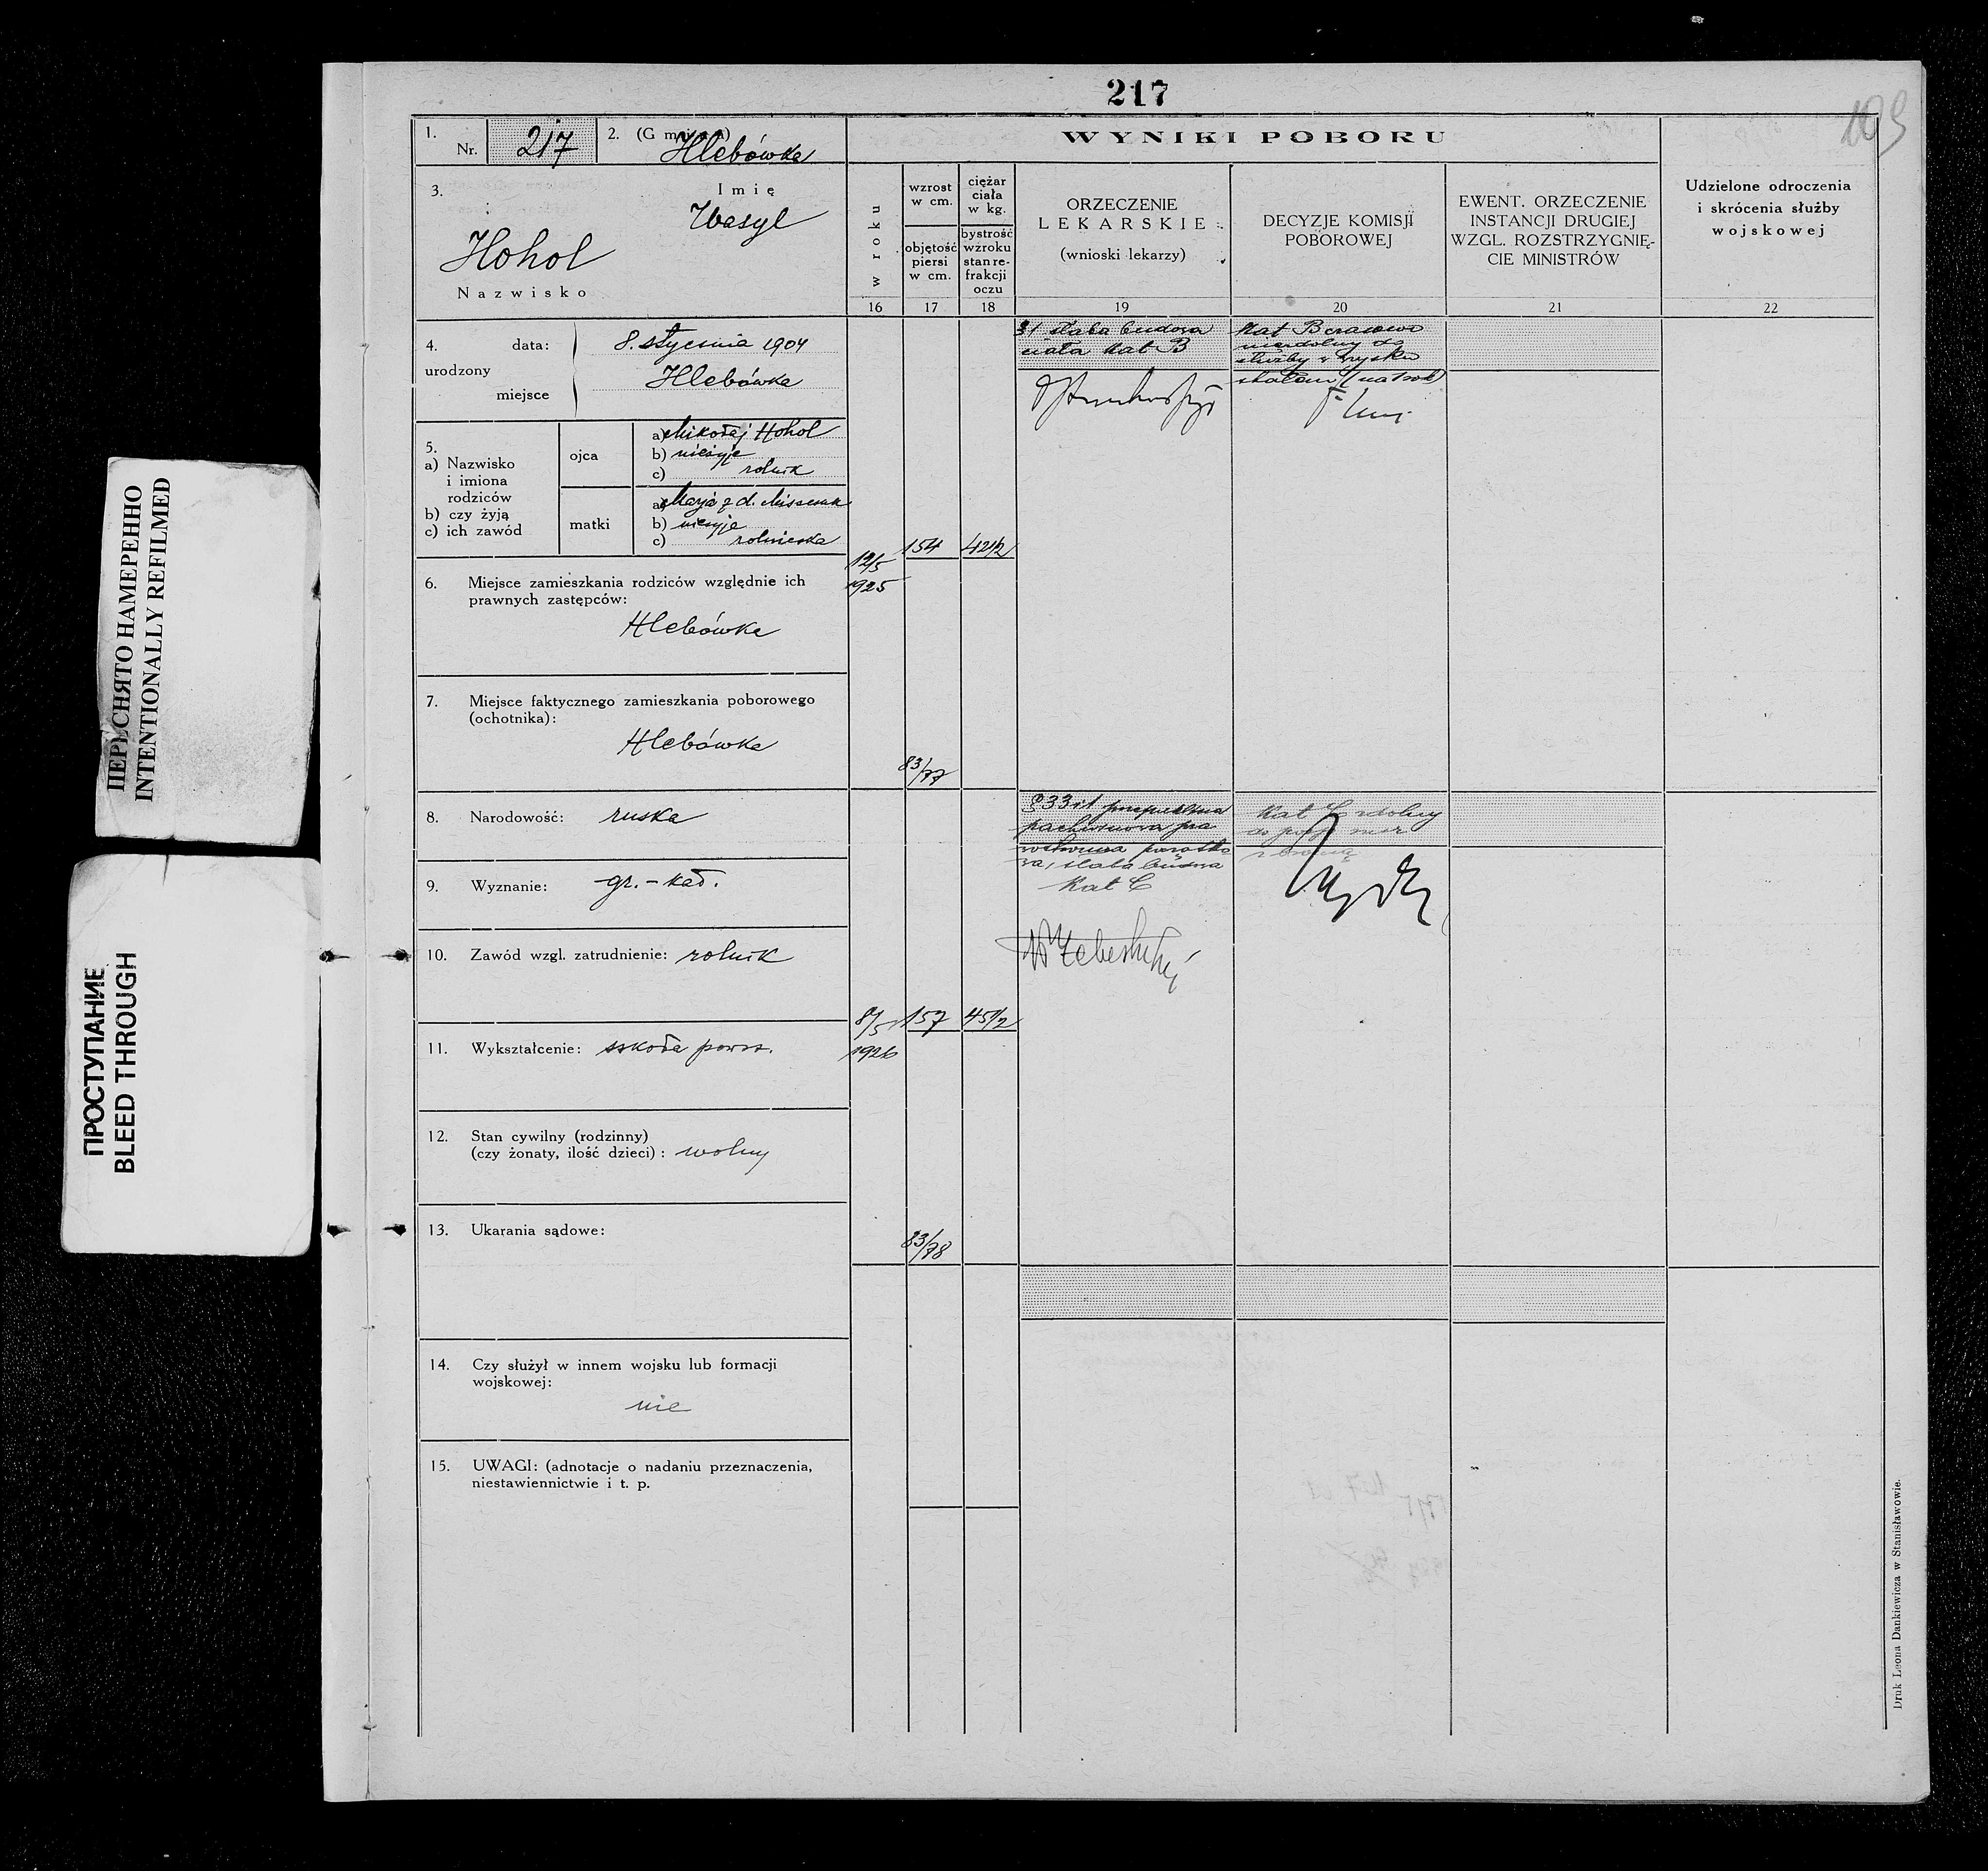 217
109
1. Nr. 217
2. (Gmina) Hlebówka
WYNIKI POBORU
3. Imię
Wasyl
Hohol
Nazwisko
w roku
wzrost w cm.
objętość piersi w cm.
ciężar ciała w kg.
bystrość wzroku stan re-frakcji oczu
ORZECZENIE
LEKARSKIE
(wnioski lekarzy)
DECYZJE KOMISJI
POBOROWEJ
EWENT. ORZECZENIE
INSTANCJI DRUGIEJ
WZGL. ROZSTRZYGNIĘ-
CIE MINISTRÓW
Udzielone odroczenia
i skrócenia służby
wojskowej
16 17 18 19 20 21 22
4. urodzony
data: 8. stycznia 1904
miejsce Hlebówka
słaba budowa
ciała kat B
Kat B czasowo
niezdolny do
służby w wojsku
stałem (na 1 rok)
5.
a) Nazwisko
i imiona
rodziców
b) czy żyją
c) ich zawód
ojca
a) Mikołaj Hohol
b) nieżyje
c) rolnik
matki
a) Marja z d.
b) nieżyje
c) rolniczka
12/5
1925
154
42 1/2
83/77
6. Miejsce zamieszkania rodziców względnie ich
prawnych zastępców:
Hlebówka
7. Miejsce faktycznego zamieszkania poborowego
(ochotnika):
Hlebówka
8. Narodowość: ruska
§ 33
pachwinowa
słaba budowa
Kat C
Kat C zdolny
do
z bronią
9. Wyznanie: gr.-kat.
10. Zawód wzgl. zatrudnienie: rolnik
8/5
1926
157
45 1/2
83/78
11. Wykształcenie: szkoła powsz.
12. Stan cywilny (rodzinny)
(czy żonaty, ilość dzieci): wolny
13. Ukarania sądowe:
14. Czy służył w innem wojsku lub formacji
wojskowej:
nie
15. UWAGI: (adnotacje o nadaniu przeznaczenia,
niestawiennictwie i t. p.
Druk Leona Dankiewicza w Stanisławowie.
ПЕРЕСНЯТО НАМЕРЕННО
INTENTIONALLY REFILMED
ПРОСТУПАНИЕ
BLEED THROUGH